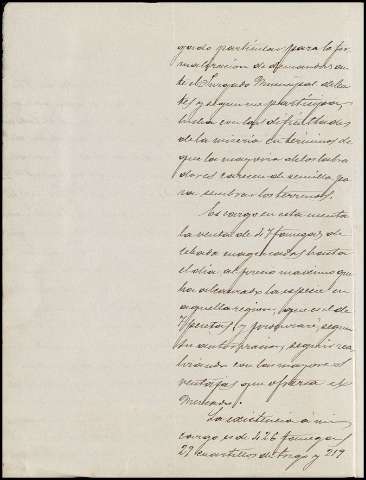 gado particular para la for
malización de demandas an
te el Juzgado Municipal de
y segun me participa,
lucha con las dificultades
de la miseria en términos de
que la mayoria de los labra
dores carecen de semilla pa
ra sembrar los terrenos.
Es cargo en esta cuenta
la venta de 47 fanegas de
cebada enagenadas hasta
el dia al precio maximo que
ha alcanzado la especie en
aquella region, que es el de
7 pesetas y procuraré, segun
su autorizacion, seguir rea
lizando con las mayores
ventajas que ofrezca el
Mercado.
La existencia á mi
cargo es de 426 fanegas
29 cuartillos de trigo y 219